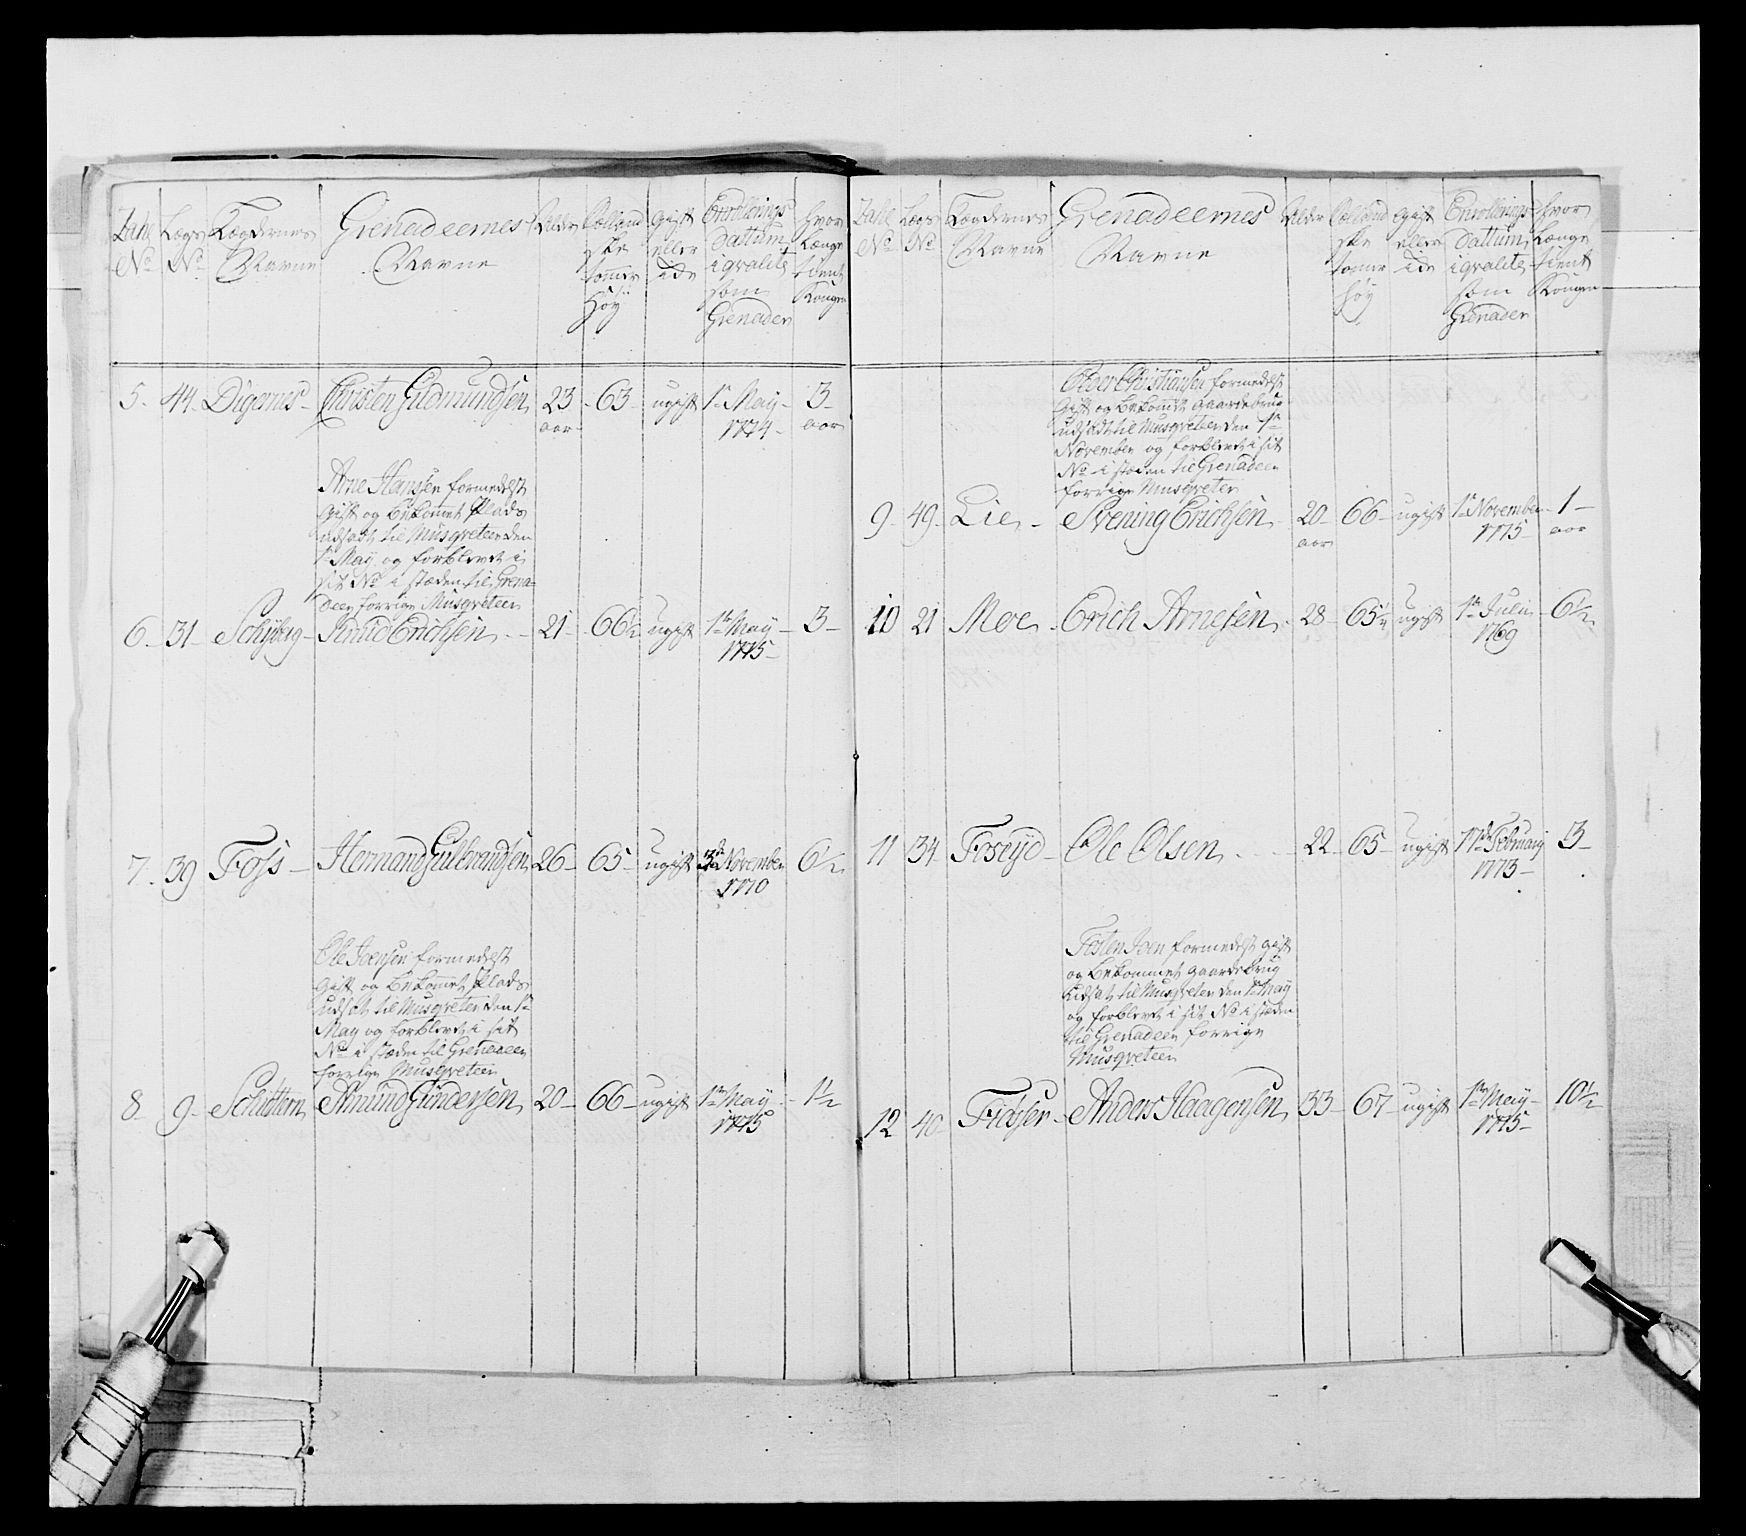 Tahl No Lægs No Lægdernes Navne Grenadeernes Navne Alder Sælland ske tomer Höy Gift eller ide Enrollerings Dattum i qvalite som Grenader hvor Længe tient Kongen
5. 44. Digernes Christen Gudmundsen 23 aar 63 ugift 1te May 1774 3 aar
Arne Hansen formedelst
gift og bekomet Plads
udsadt til Musqveteer den
1te May og forblevet i
sit No i stæden til Grena-
deer forrige Musqveteer
6. 31 Schÿberg Knud Erichsen 21 66½ ugift 1te May 1775 3
7. 39 Foss Hermand Gulbrandsen 26 65 ugift 3de November 1770 6½
Ole Joensen formedelst
gift og bekomet Plads
udsat til Musqveteer den 1te
May og forblevet i sit
No i stæden til Grenadeer
forrige Musqveteer
8 9 Schuttern Amund Gundersen 20 66 ugift 1te May 1775 1½
Tahl No Lægs No Lægdernes Navne Grenadeernes Navne Alder Sælland ske tomer höy Gift eller ide Enrollerings Dattum i qvalite som Grenader hvor Længe tient Kongen
Christiansen formedelst
gift og bekomet gaardebrug
udsadt til Musqveteer den 1te
November og forblevet i sit
No i stæden til Grenadeer
forrige Musqveteer
9 49 Lie Svening Erichsen 20 aar 66 ugift 1te November 1775 1 aar
10 21 Moe Erich Arnesen 28 65½ ugift 1te Julii 1769 6½
11 34 Foseÿd Ole Olsen 22 65 ugift 17de Februarij 1773 3
Tosten Joen formedelst gift
og bekommet gaardebrug
udsat til Musqveteer den 1te May
og forblevet i sit No i stæden
til Grenadeer forrige
Musqveteer
12 40 Fidser Anders Haagensen 33 67 ugift 1te May 1775 10½